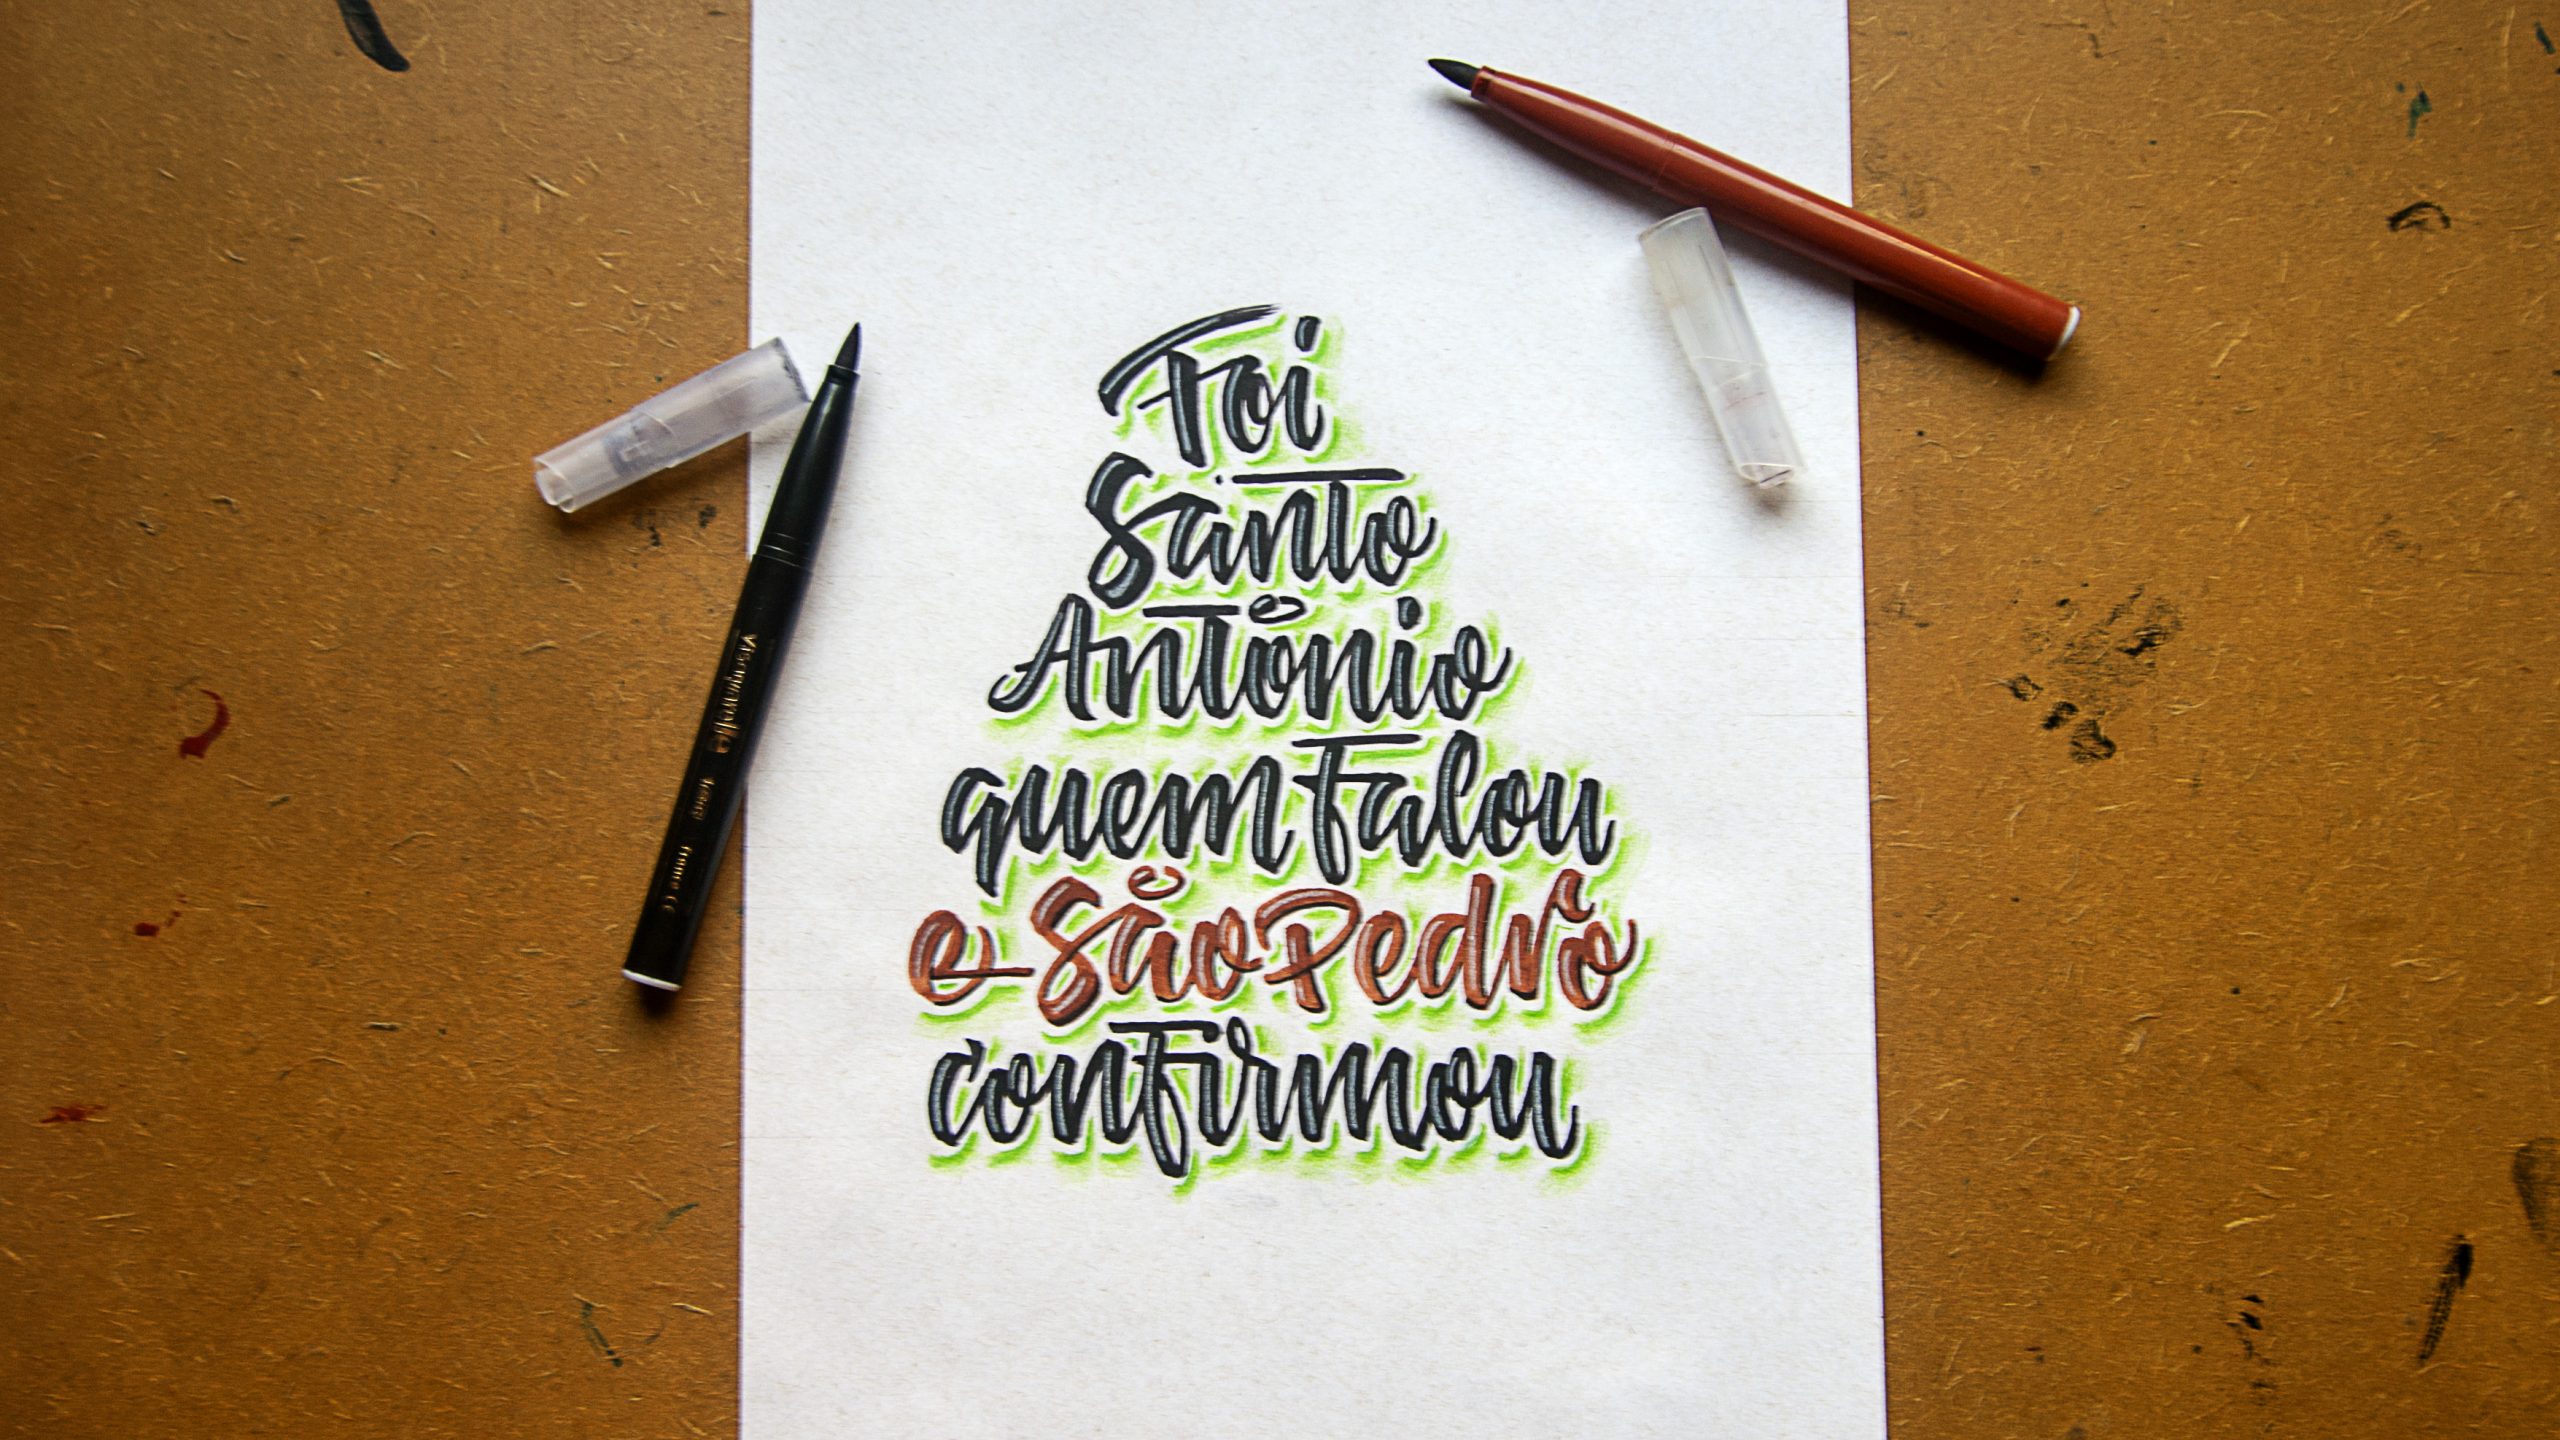 Foi
Santo
Antônio
quem falou
e São Pedro
confirmou
Visaquarelle